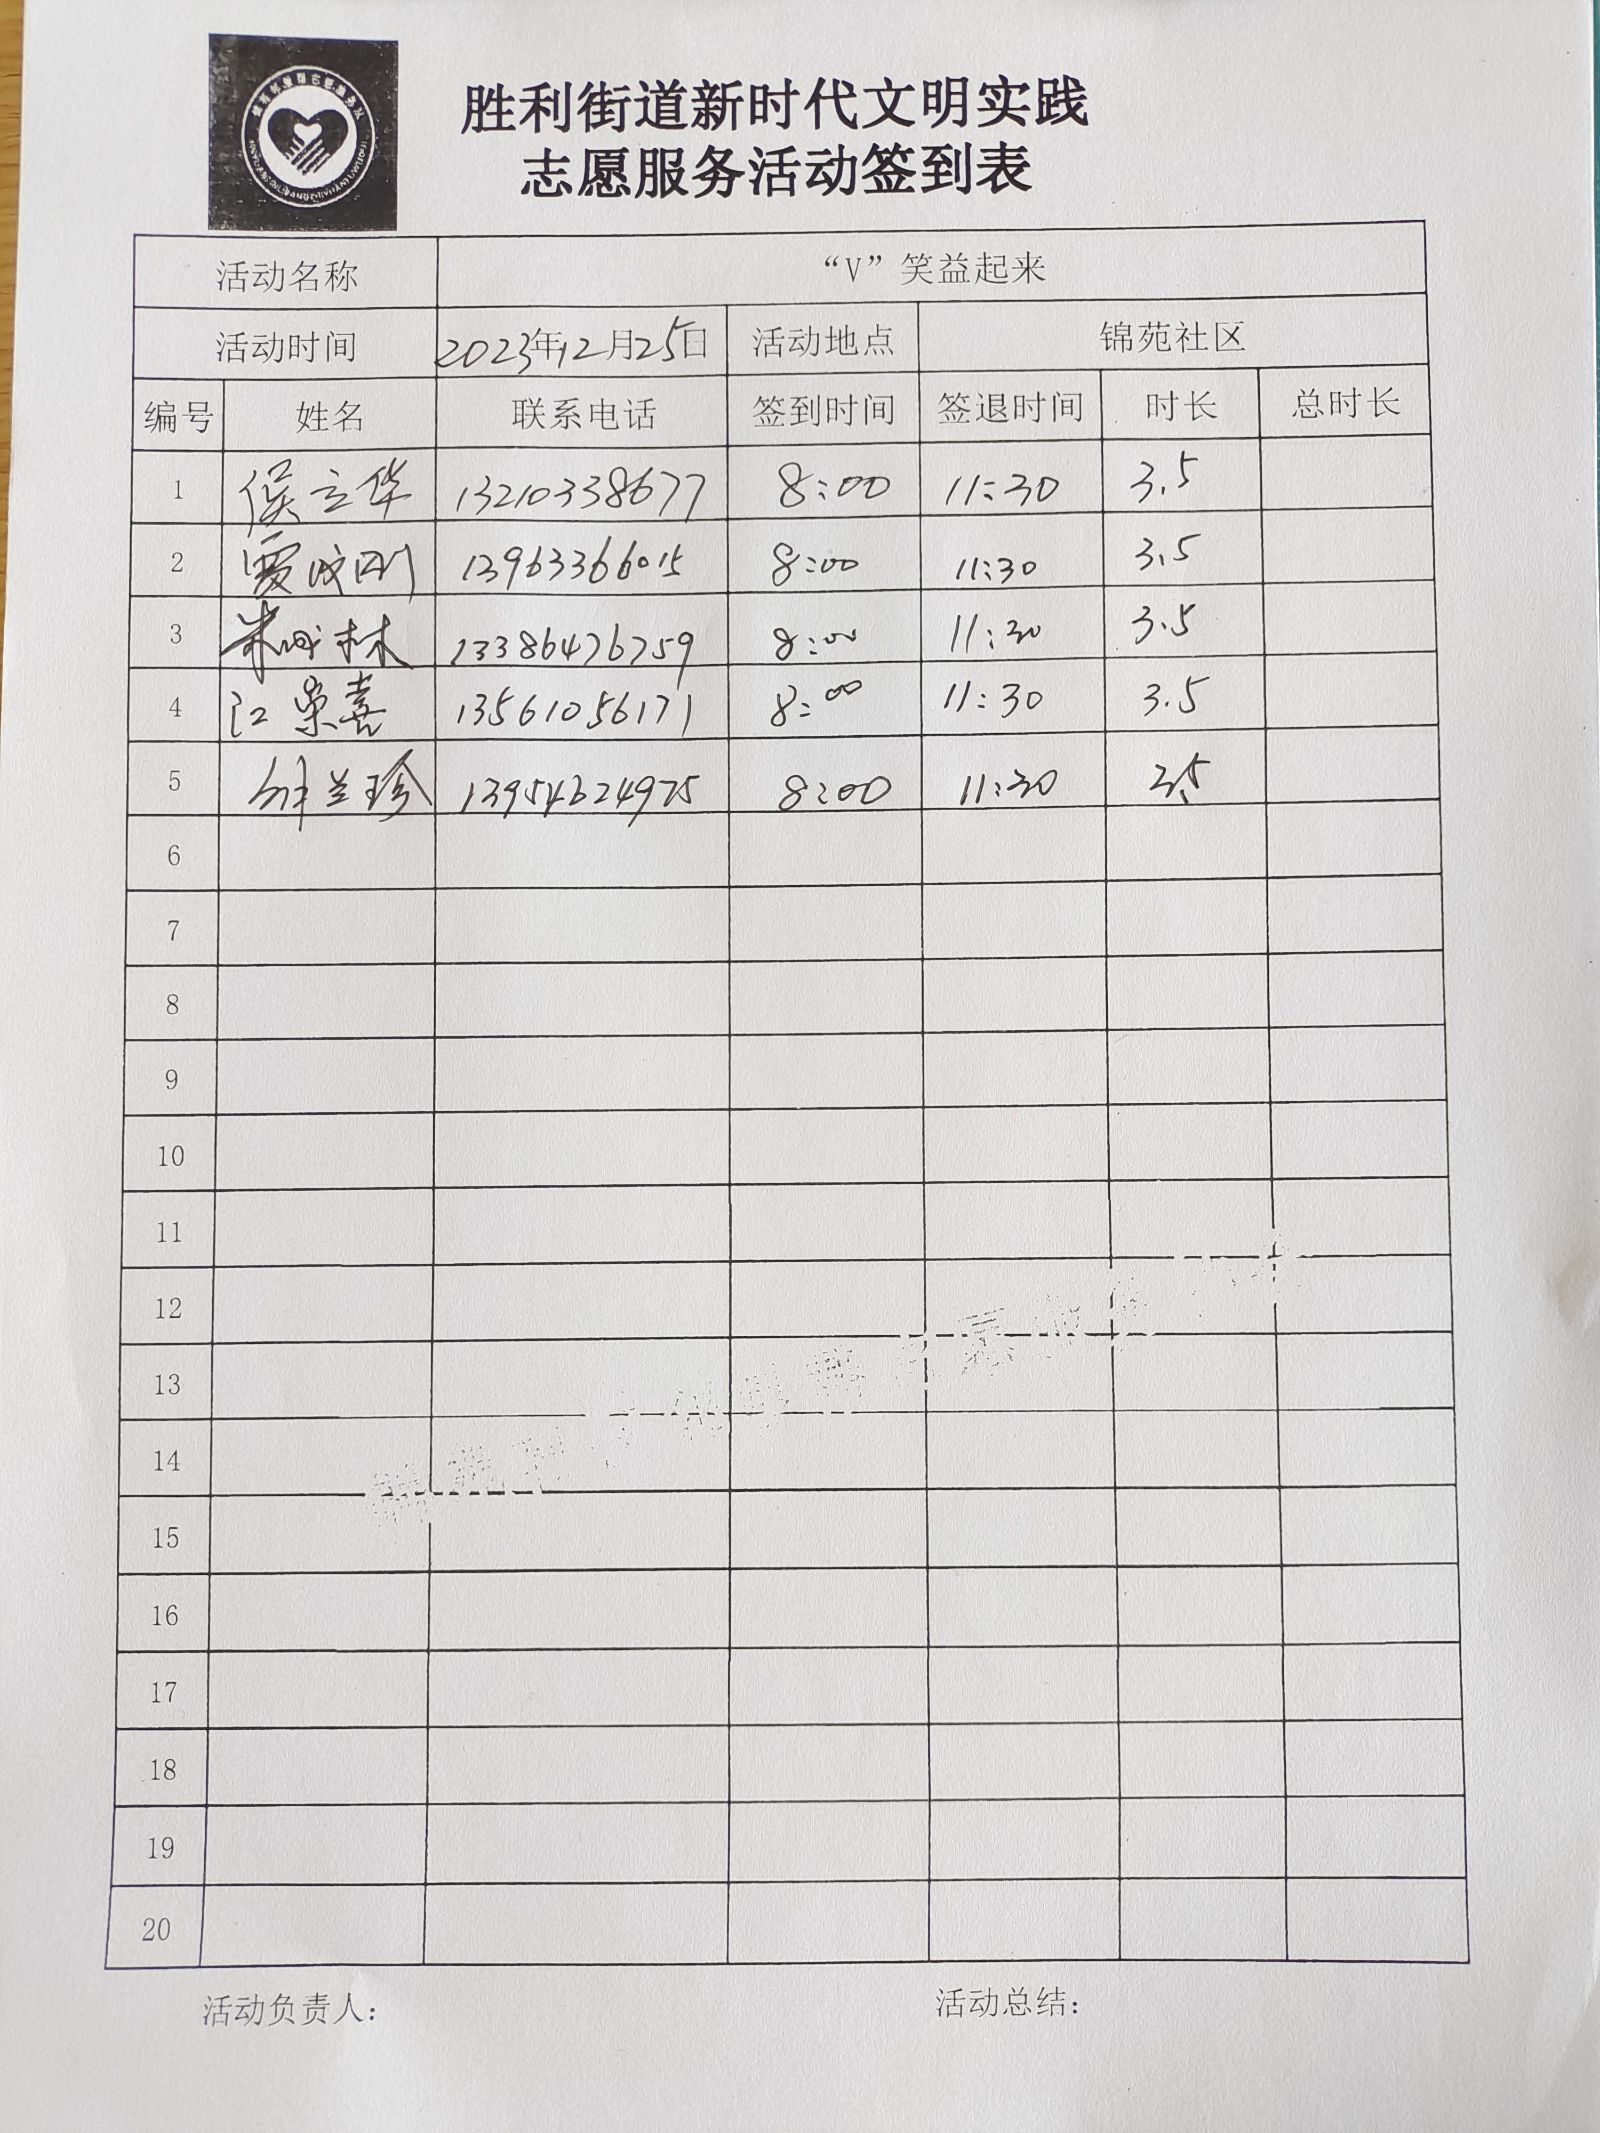 胜利街道新时代文明实践
志愿服务活动签到表
活动名称 “V”笑益起来
活动时间 2023年12月25日 活动地点 锦苑社区
编号 姓名 联系电话 签到时间 签退时间 时长 总时长
1 侯立华 13210338677 8:00 11:30 3.5
2 贾成刚 13963366015 8:00 11:30 3.5
3 林 13386476759 8:00 11:30 3.5
4 江荣喜 13561056171 8:00 11:30 3.5
5 兰珍 13954624975 8:00 11:30 3.5
6
7
8
9
10
11
12
13
14
15
16
17
18
19
20
活动负责人： 活动总结：